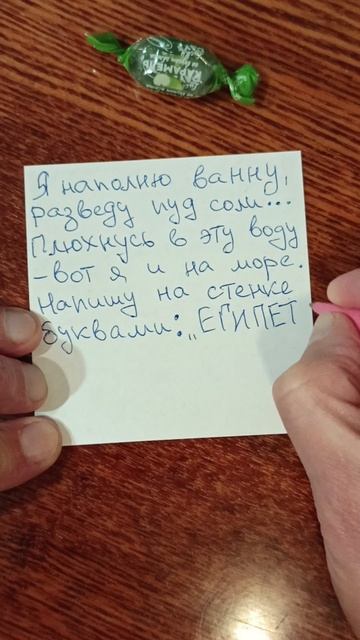 КАРАМЕЛЬ
Я наполню ванну,
разведу пуд соли...
Плюхнусь в эту воду
-вот я и на море.
Напишу на стенке
буквами: „ЕГИПЕТ